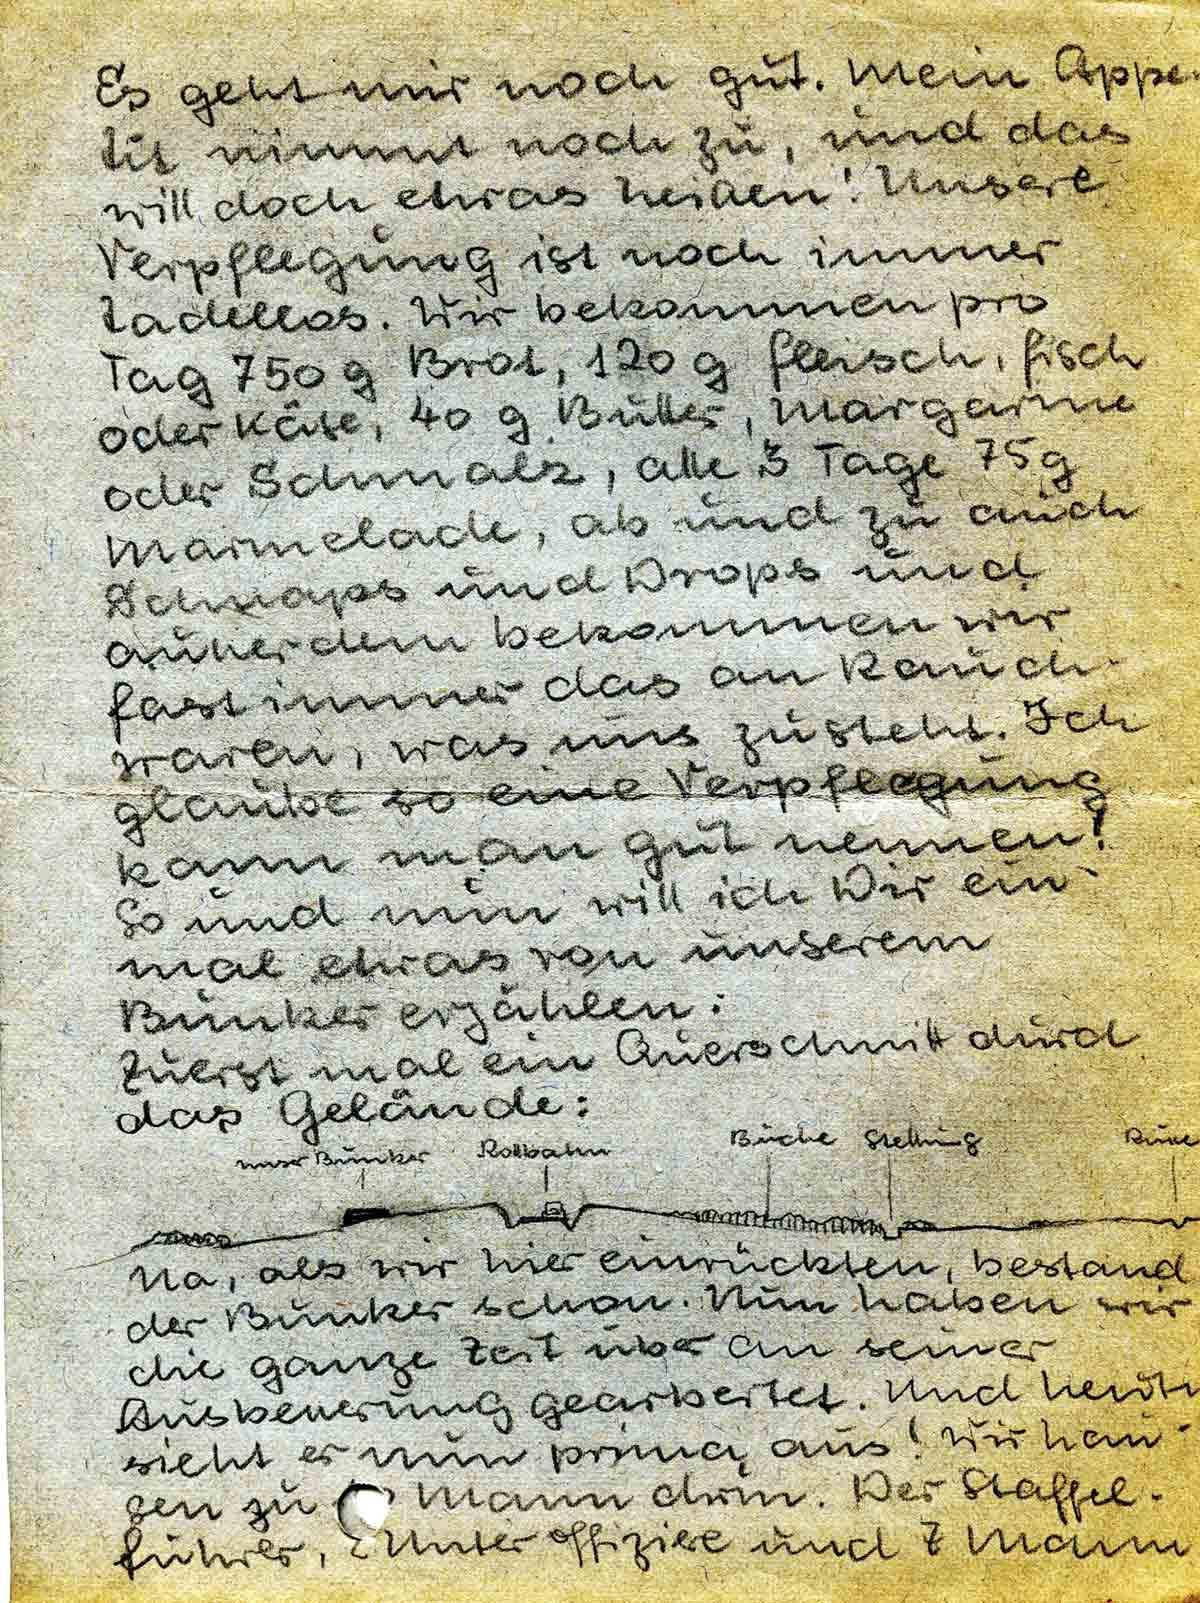 Es geht mir noch gut. Mein Appe-
tit nimmt noch zu, und das
will doch etwas heißen! Unsere
Verpflegung ist noch immer
tadellos. Wir bekommen pro
Tag 750 g Brot, 120 g Fleisch, Fisch
oder Käse, 40 g Butter, Margarine
oder Schmalz, alle 3 Tage 75 g
Marmelade, ab und zu auch
Schnaps und Drops und
außerdem bekommen wir
fast immer das an Rauch-
waren, was uns zusteht. Ich
glaube so eine Verpflegung
kann man gut nennen!
So und nun will ich Dir ein-
mal etwas von unserem
Bunker erzählen:
Zuerst mal ein Querschnitt durch
das Gelände:
unser Bunker Rollbahn Büche Stellung
Na, als wir hier einrückten, bestand
der Bunker schon. Nun haben wir
die ganze Zeit über an seiner
Ausbeuerung gearbeitet. Und heute
sieht er nun prima aus! Wir hau-
sen zu Mann drin. Der Staffel-
führer, 2 Unteroffiziere und 7 Mann